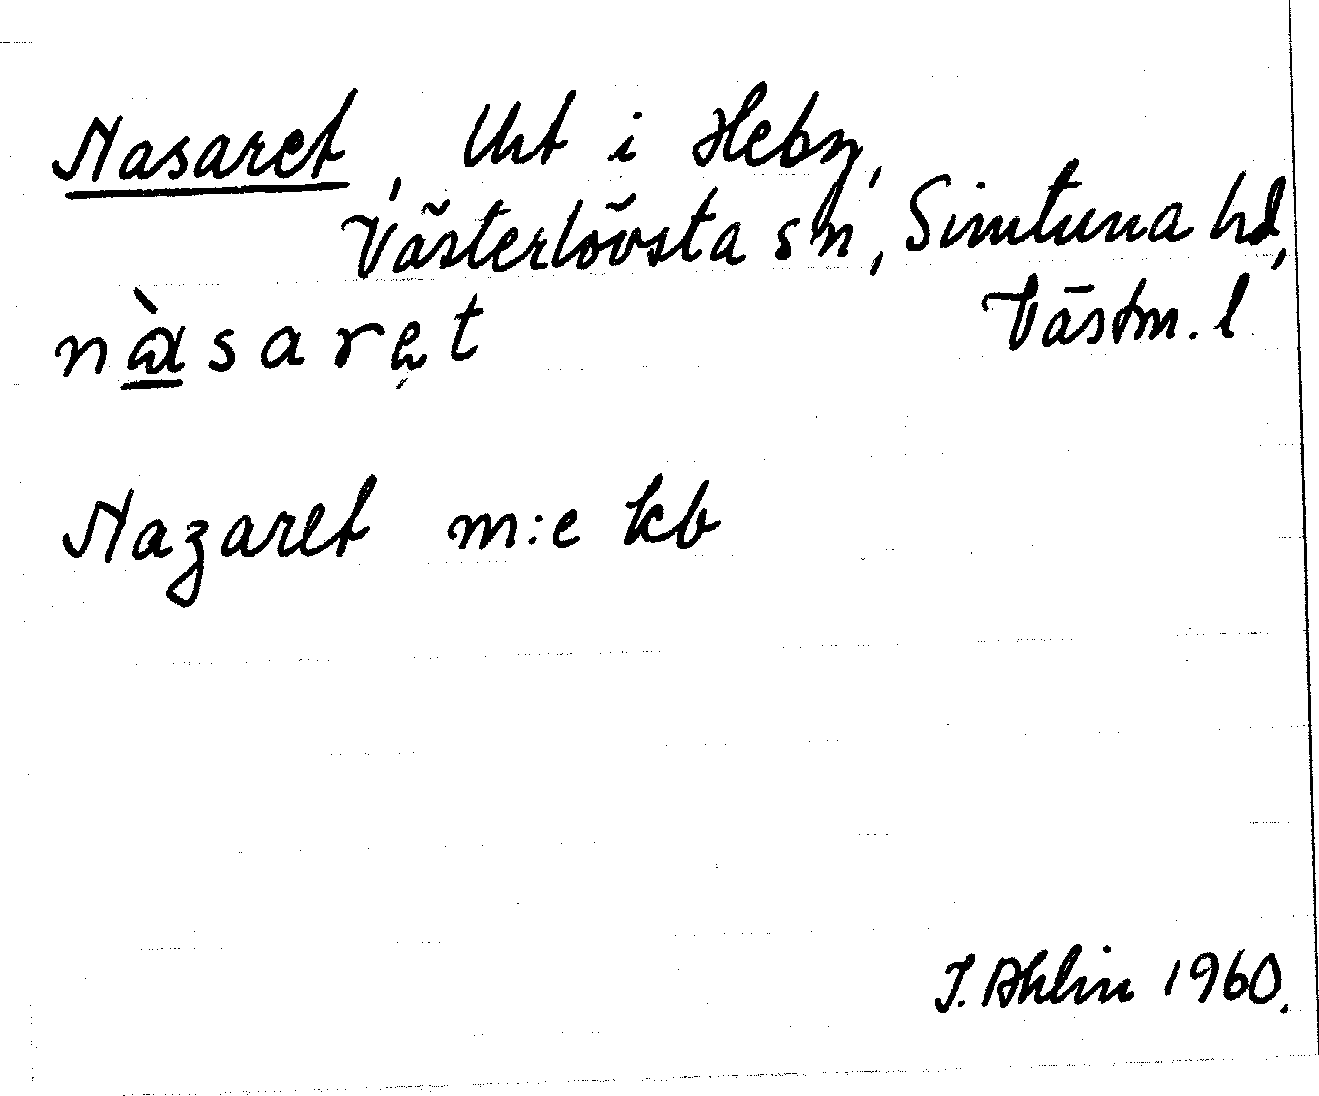 Nasaret, Urt i Heby,
Västerlövsta sn, Simtuna hd,
Västm. l
nàsarẹt
Nazaret m:e kb
J. Ahlin 1960.